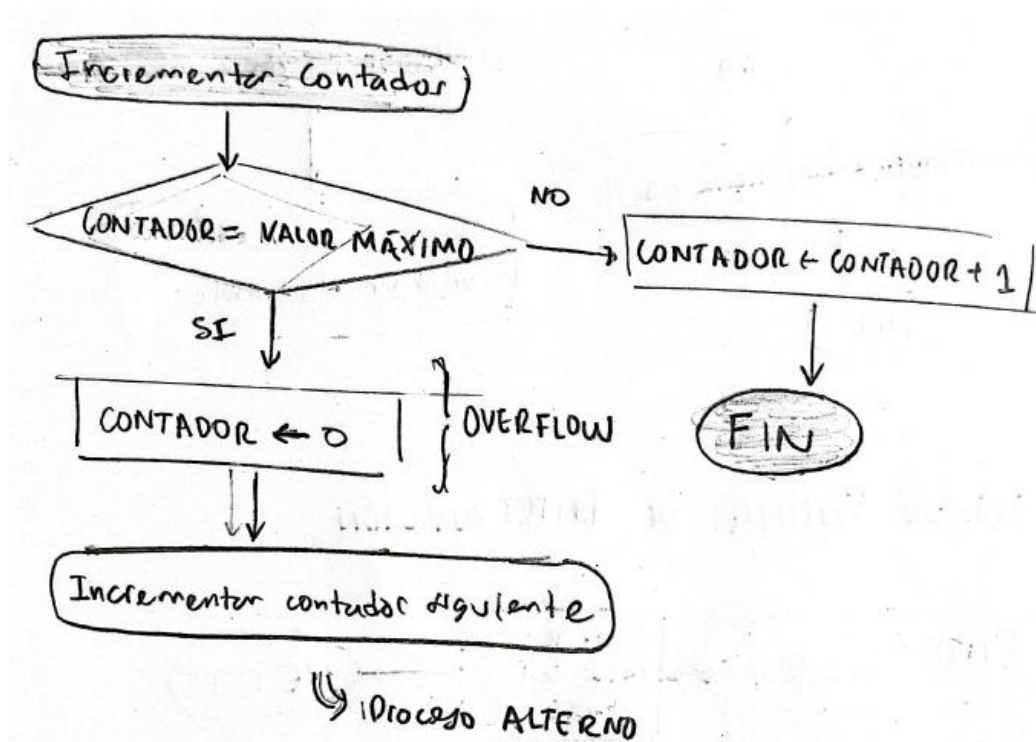 Incrementar Contador
CONTADOR = VALOR MÁXIMO
NO
CONTADOR ← CONTADOR + 1
SI
CONTADOR ← 0
OVERFLOW
FIN
Incrementar contador siguiente
Proceso ALTERNO